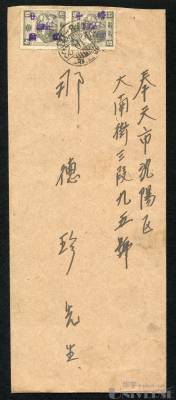 奉天市瀋陽区
大南街三段九五號
那德珍先生